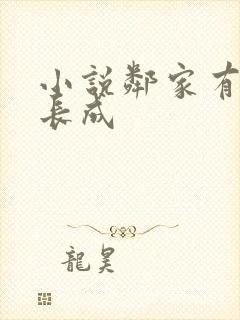 小說鄰家有
長成
龍昊